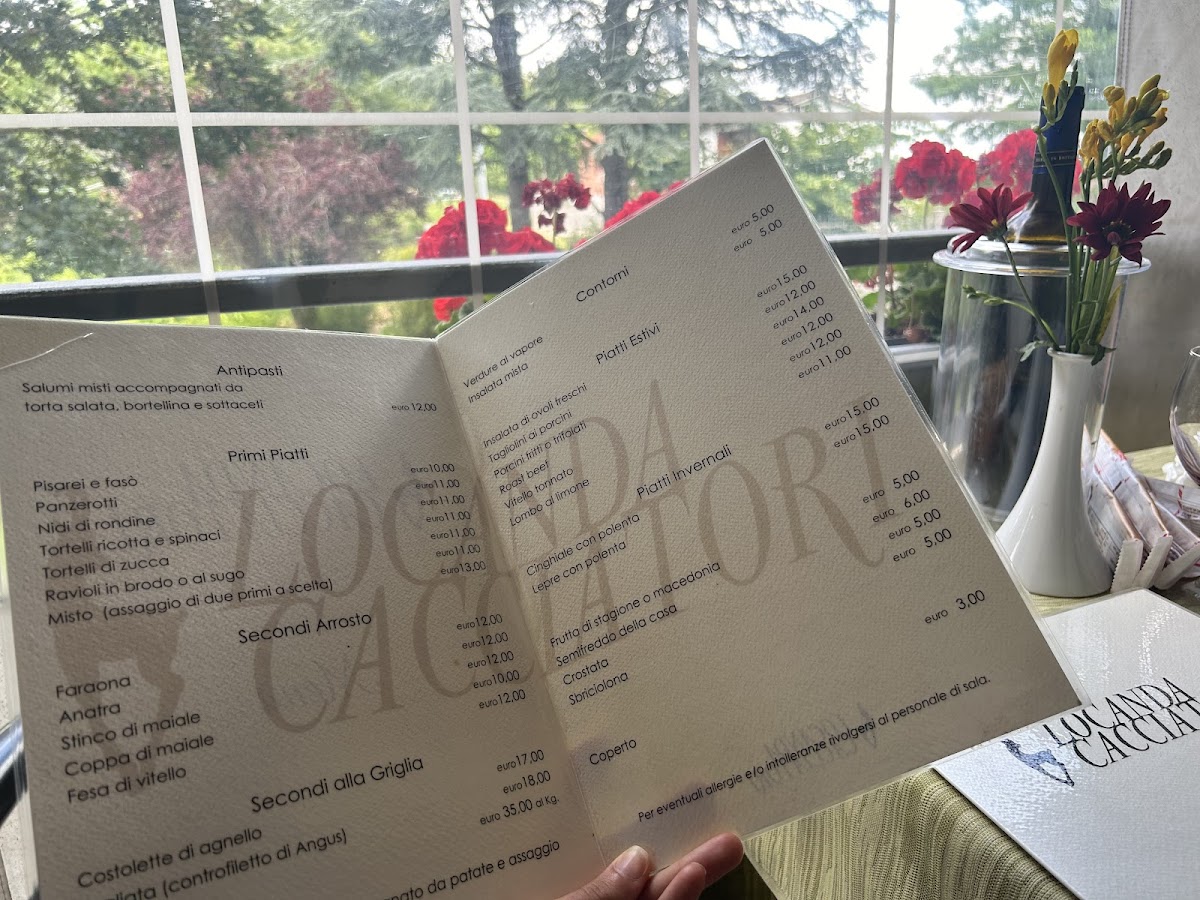 Antipasti
Salumi misti accompagnati da
torta salata, bortellina e sottaceti euro 12,00
Primi Piatti
Pisarei e fasò euro 10,00
Panzerotti euro 11,00
Nidi di rondine euro 11,00
Tortelli ricotta e spinaci euro 11,00
Tortelli di zucca euro 11,00
Ravioli in brodo o al sugo euro 11,00
Misto (assaggio di due primi a scelta) euro 13,00
Secondi Arrosto
Faraona euro 12,00
Anatra euro 12,00
Stinco di maiale euro 12,00
Coppa di maiale euro 10,00
Fesa di vitello euro 12,00
Secondi alla Griglia
Costolette di agnello euro 17,00
(controfiletto di Angus) euro 18,00
euro 35,00 al Kg.
da patate e assaggio
Contorni
Verdure al vapore euro 5,00
Insalata mista euro 5,00
Piatti Estivi
Insalata di ovoli freschi euro 15,00
Tagliolini ai porcini euro 12,00
Porcini fritti o trifolati euro 14,00
Roast beef euro 12,00
Vitello tonnato euro 12,00
Lombo al limone euro 11,00
Piatti Invernali
Cinghiale con polenta euro 15,00
Lepre con polenta euro 15,00
Frutta di stagione o macedonia euro 5,00
Semifreddo della casa euro 6,00
Crostata euro 5,00
Sbriciolona euro 5,00
Coperto euro 3,00
Per eventuali allergie e/o intolleranze rivolgersi al personale di sala.
LOCANDA
CACCIATORI
LOCANDA
CACCIAT